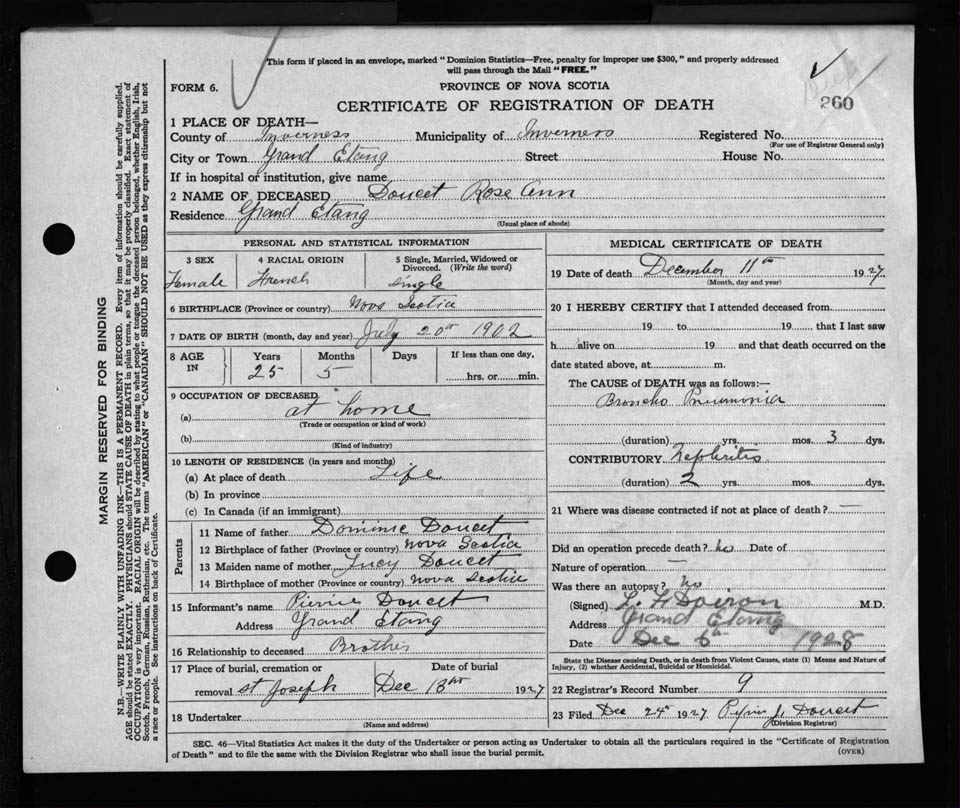 This form if placed in an envelope, marked "Dominion Statistics—Free, penalty for improper use $300," and properly addressed
will pass through the Mail "FREE."
FORM 6.
PROVINCE OF NOVA SCOTIA
260
CERTIFICATE OF REGISTRATION OF DEATH
1 PLACE OF DEATH—
County of Inverness Municipality of Inverness Registered No.
(For use of Registrar General only)
City or Town Grand Etang Street House No.
If in hospital or institution, give name
2 NAME OF DECEASED Doucet Rose Ann
Residence Grand Etang
(Usual place of abode)
PERSONAL AND STATISTICAL INFORMATION
3 SEX 4 RACIAL ORIGIN 5 Single, Married, Widowed or
Divorced. (Write the word)
Female French Single
6 BIRTHPLACE (Province or country) Nova Scotia
7 DATE OF BIRTH (month, day and year) July 20th 1902
8 AGE IN Years Months Days If less than one day,
25 5 hrs. or min.
9 OCCUPATION OF DECEASED
(a) at home
(Trade or occupation or kind of work)
(b)
(Kind of industry)
10 LENGTH OF RESIDENCE (in years and months)
(a) At place of death Life
(b) In province
(c) In Canada (if an immigrant)
Parents
11 Name of father Dominic Doucet
12 Birthplace of father (Province or country) Nova Scotia
13 Maiden name of mother Lucy Doucet
14 Birthplace of mother (Province or country) Nova Scotia
15 Informant's name Pierrie Doucet
Address Grand Etang
16 Relationship to deceased Brother
17 Place of burial, cremation or Date of burial
removal St Joseph Dec 13th 1927
18 Undertaker
(Name and address)
MEDICAL CERTIFICATE OF DEATH
19 Date of death December 11th 1927
(Month, day and year)
20 I HEREBY CERTIFY that I attended deceased from
19 to 19 that I last saw
h alive on 19 and that death occurred on the
date stated above, at m.
The CAUSE of DEATH was as follows:—
Broncho Pneumonia
(duration) yrs. mos. 3 dys.
CONTRIBUTORY Nephritis
(duration) 2 yrs. mos. dys.
21 Where was disease contracted if not at place of death? —
Did an operation precede death? no Date of
Nature of operation —
Was there an autopsy? no
(Signed) L. H Doiron M.D.
Address Grand Etang
Date Dec 6th 1928
State the Disease causing Death, or in death from Violent Causes, state (1) Means and Nature of
Injury, (2) whether Accidental, Suicidal or Homicidal.
22 Registrar's Record Number 9
23 Filed Dec 24th 1927 J. Doucet
(Division Registrar)
SEC. 46—Vital Statistics Act makes it the duty of the Undertaker or person acting as Undertaker to obtain all the particulars required in the "Certificate of Registration
of Death" and to file the same with the Division Registrar who shall issue the burial permit.
(OVER)
MARGIN RESERVED FOR BINDING
N.B.—WRITE PLAINLY WITH UNFADING INK—THIS IS A PERMANENT RECORD. Every item of information should be carefully supplied.
AGE should be stated EXACTLY. PHYSICIANS should STATE CAUSE OF DEATH in plain terms, so that it may be properly classified. Exact statement of
OCCUPATION is very important. RACIAL ORIGIN will be described by stating to what people or tongue the deceased person belonged, whether English, Irish,
Scotch, French, German, Russian, Ruthenian, etc. The terms "AMERICAN" or "CANADIAN" SHOULD NOT BE USED as they express citizenship but not
a race or people. See instructions on back of Certificate.